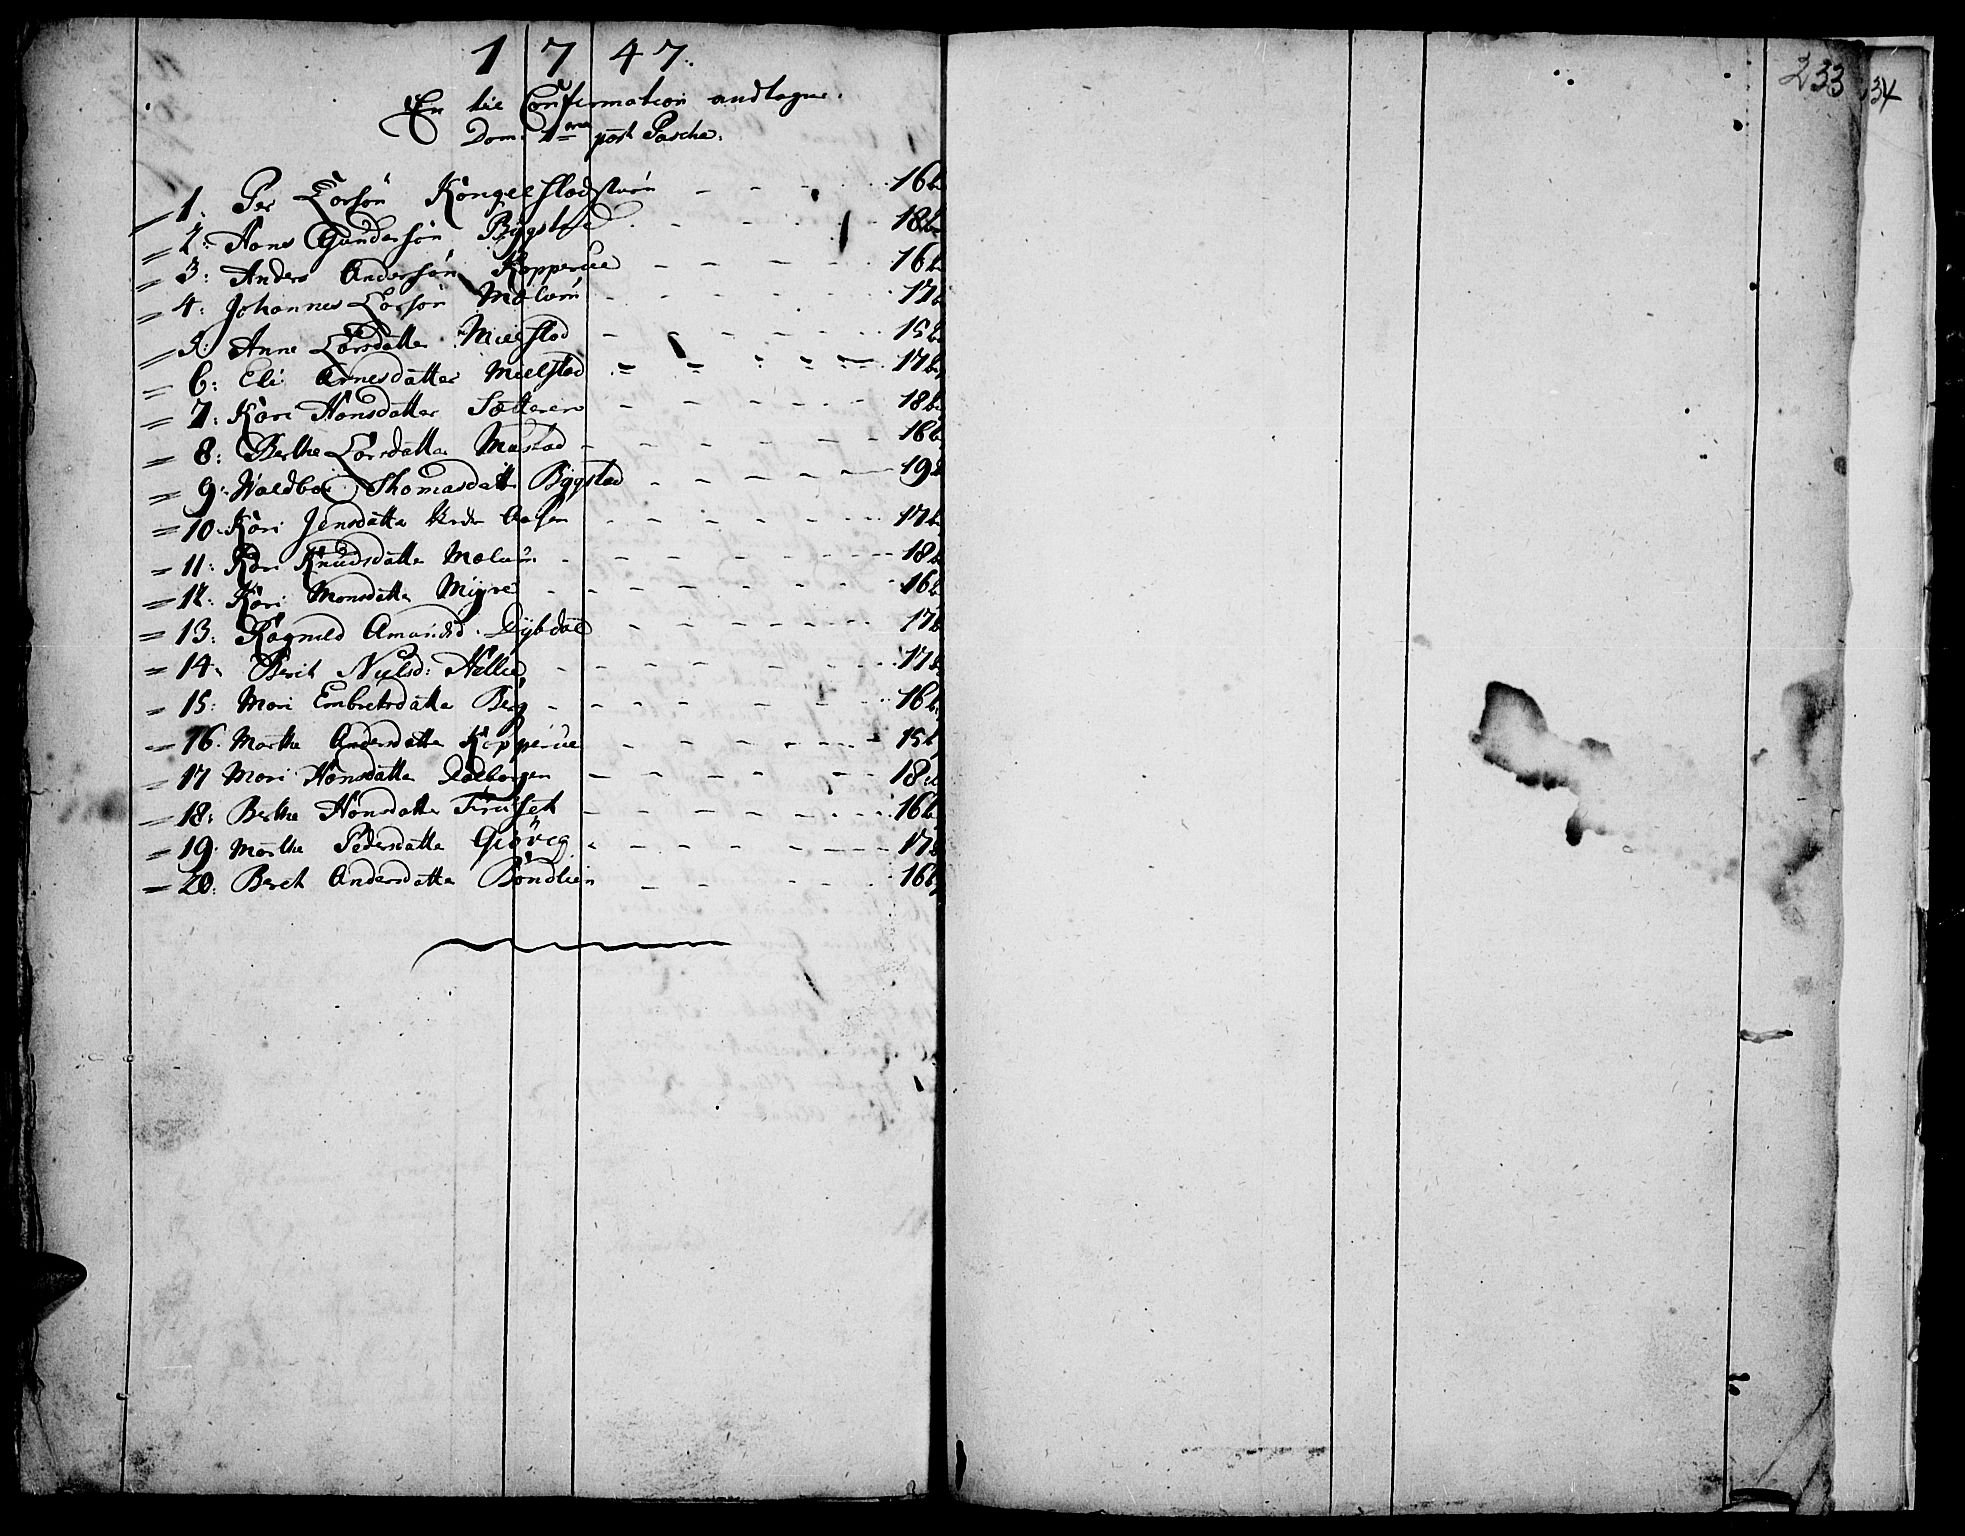 1747.
En til Confirmation andtagne.
Dom. 1ma post Pascha.
1: Per Larsön Kongelstadstuen - - - 16
2: Hans Gundersön Bÿgstad - - - 18
3: Anders Andersön Kopperue - - - 16
4: Johannes Larsön Mælum - - - 17
5: Anne Larsdatter Mielstad - - - 15
6: Eli Arnesdatter Mielstad - - - 17
7: Kari Hansdatter Sætteren - - - 18
8: Berthe Larsdatter Mustad - - - 16
9: Waldbor Thomasdatter Bÿgstad - - - 19
10: Kari Jensdatter Aasen - - - 17
11: Kari Knudsdatter Mælum - - - 18
12: Kari Monsdatter Mÿre - - - 16
13: Ragnild Amundsd. Dÿbdal - - - 17
14: Berit Nielsd: - - - 17
15: Mari Embretsdatter Berg - - - 16
16. Marthe Andersdatter Kopperue - - - 15
17 Mari Hansdatter Dalborgen - - - 18
18: Berthe Hansdatter - - - 16
19: Marthe Pedersdatter Giöveg - - - 17
20: Berit Andersdatter Böndlien - - - 16
233
34